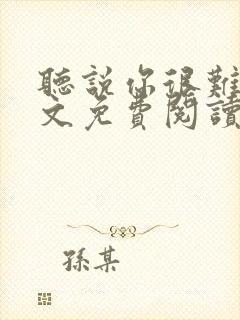 聽說你很難
文免費閱讀
孫某